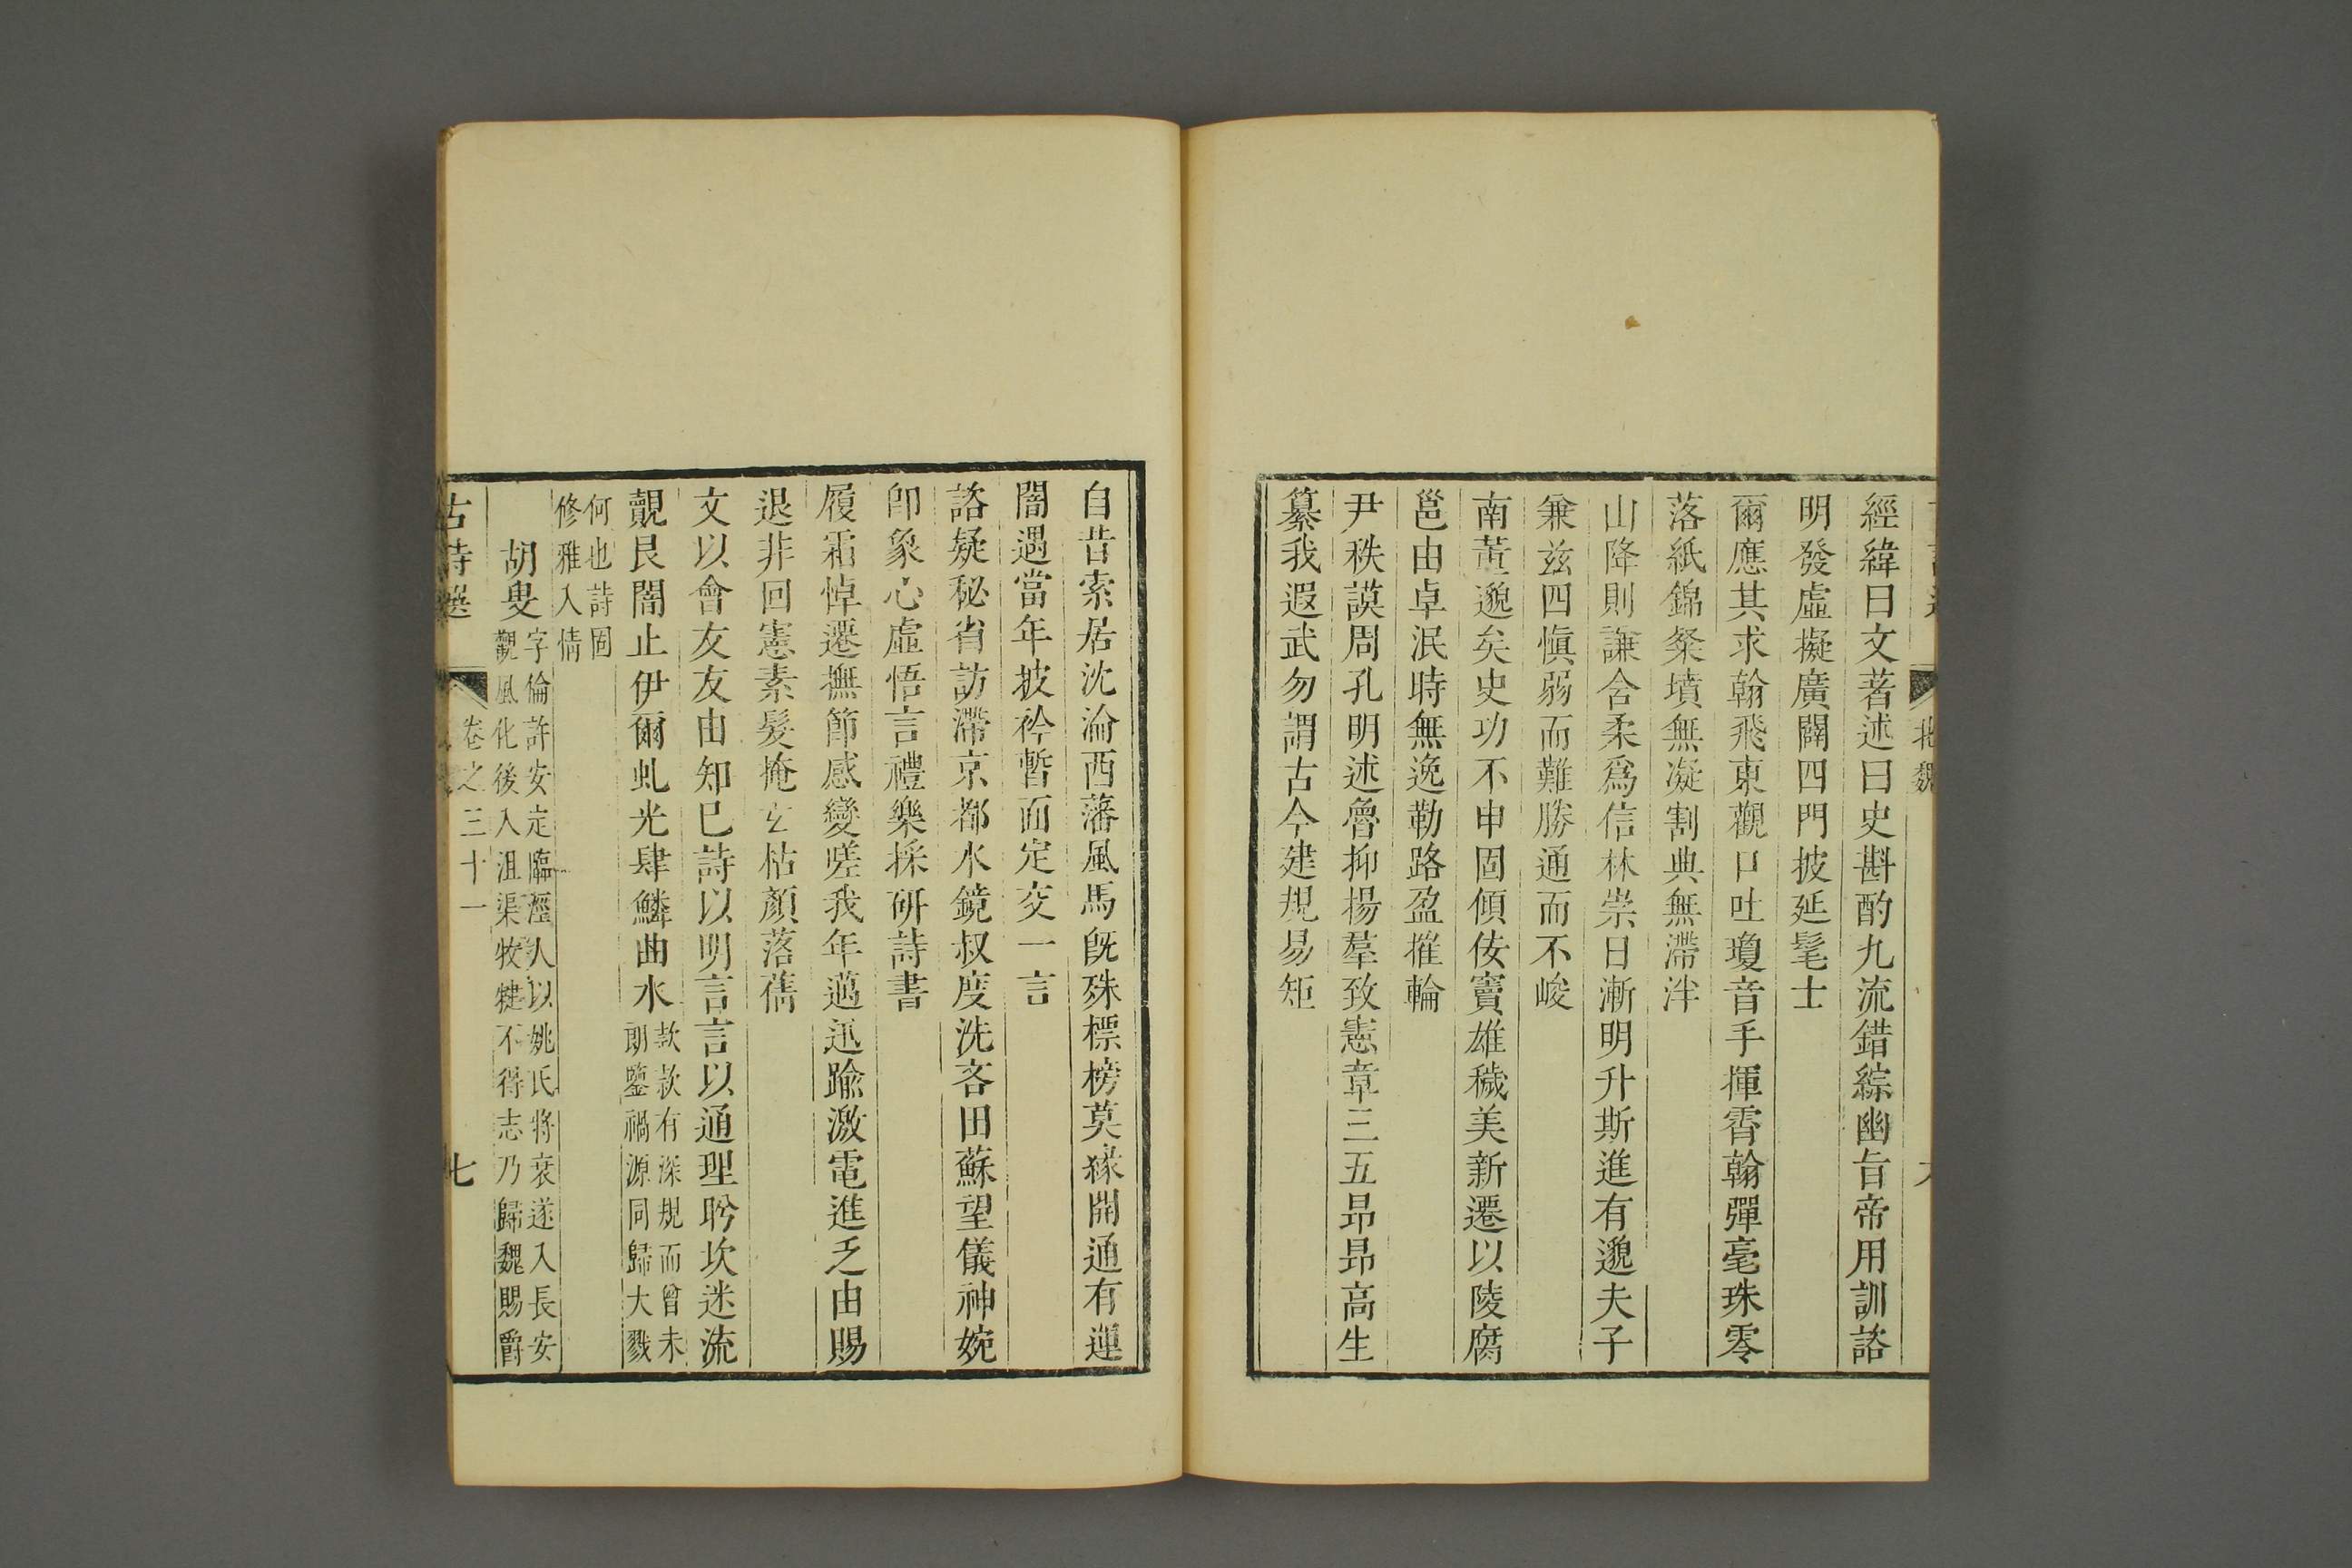 北魏
經緯曰文著述曰史斟酌九流錯綜幽旨帝用訓諮
明發虛擬廣闢四門披延髦士
爾應其求翰飛東觀口吐瓊音手揮霄翰彈毫珠零
落紙錦粲墳無凝割典無滯泮
山降則謙含柔爲信林崇日漸明升斯進有邈夫子
兼兹四愼弱而難勝通而不峻
南董邈矣史功不申固傾佞竇雄穢美新遷以陵腐
邕由卓泯時無逸勒路盈摧輪
尹秩謨周孔明述魯抑揚羣致憲章三五昂昂高生
纂我遐武勿謂古今建規易矩
自昔索居沈淪西藩風馬旣殊標榜莫緣開通有運
闇遇當年披衿暫面定交一言
諮疑秘省訪滯京都水鏡叔度洗吝田蘇望儀神婉
卽象心虛悟言禮樂採研詩書
履霜悼遷撫節感變嗟我年邁迅踰激電進乏由賜
退非回憲素髮掩玄枯顏落蒨
文以會友友由知已詩以明言言以通理盻坎迷流
覿艮闇止伊爾虬光肆鱗曲水
款款有深規而曾未
朗鑒禍源同歸大戮
何也詩固
修雅入情
胡叟
字倫許安定臨涇人以姚氏將衰遂入長安
觀風化後入沮渠牧犍不得志乃歸魏賜爵
古詩選 卷之三十一 七